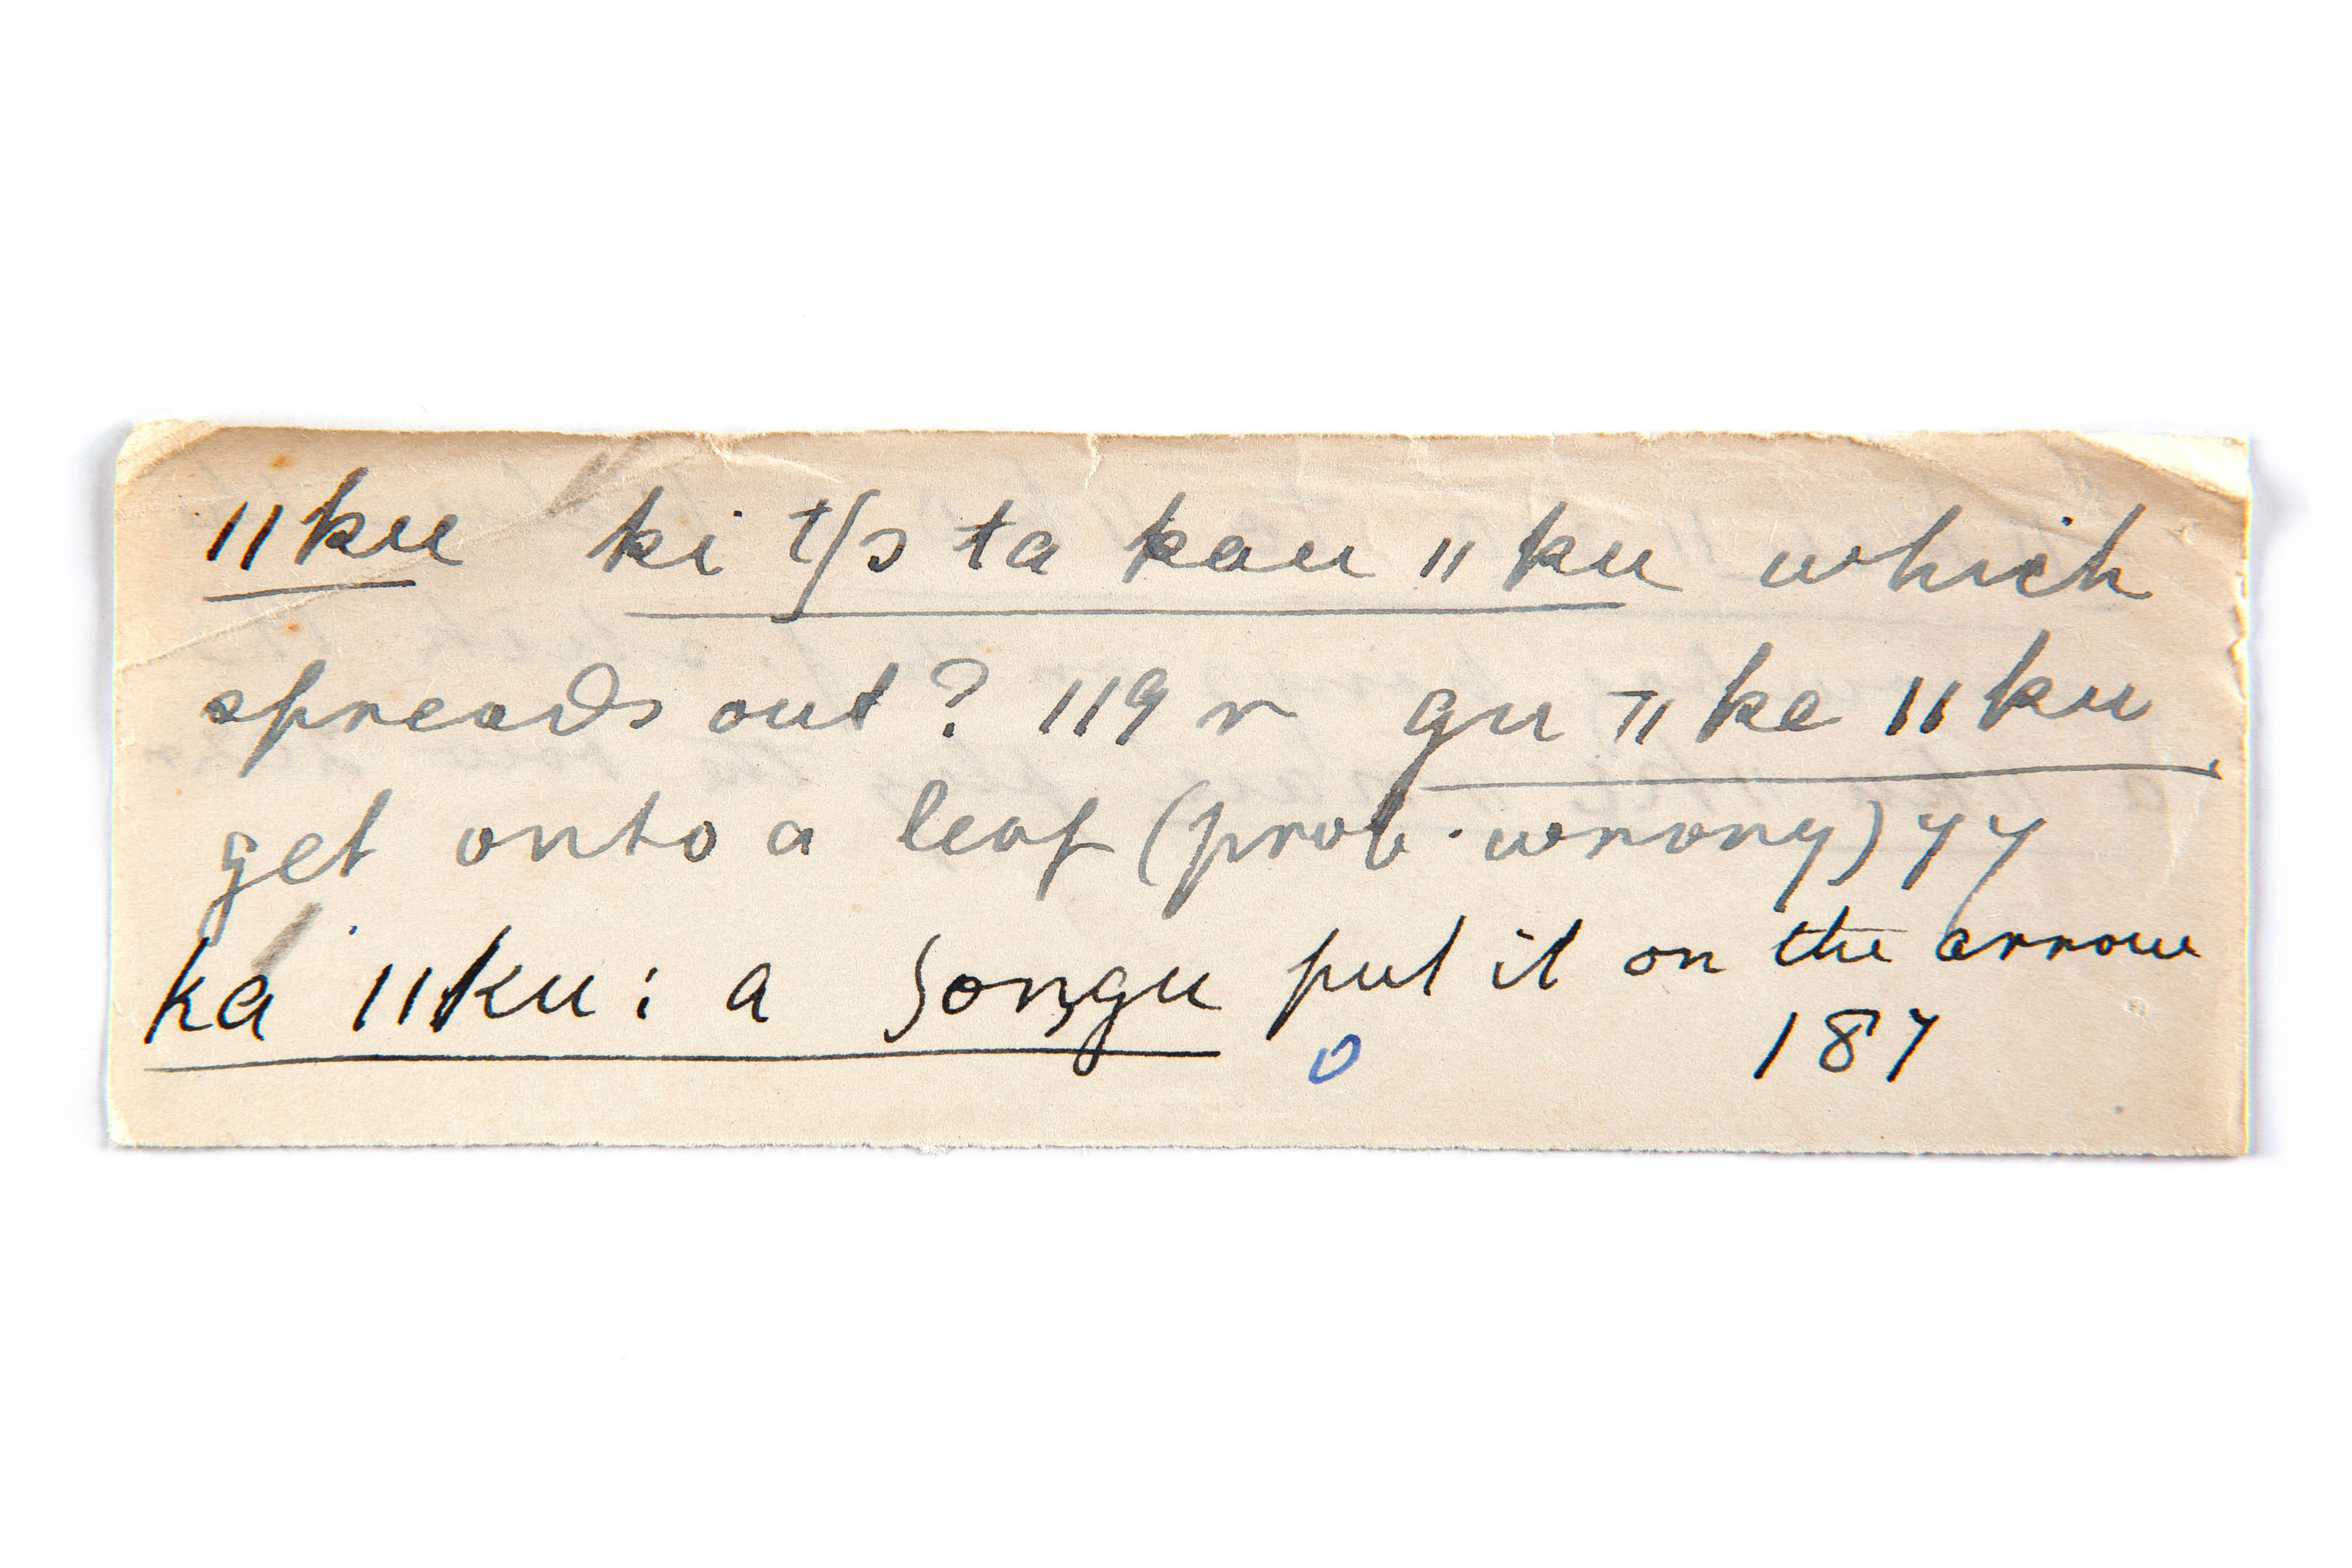 ǁku ki t/s ta kau ǁku which
spreads out? 119 r gu ⁊ǁ ke ǁku
get onto a leaf (prob. wrong) 77
ka ǁku: a ʃoŋgu put it on the arrow
0 187